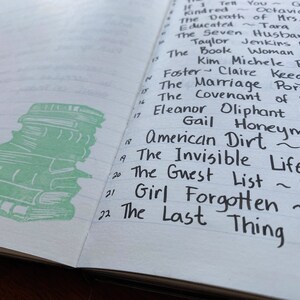 If I Tell You ~
Kindred - Octavi
The Death of Mrs.
Educated ~ Tara
The Seven Husban
Taylor Jenkins
The Book Woman
Kim Michele
Foster ~ Claire Kee
The Marriage Por
16 The Covenant of
17 Eleanor Oliphant
Gail Honeym
18 American Dirt ~
19 The Invisible Life
20 The Guest List ~
21 Girl Forgotten ~
22 The Last Thing